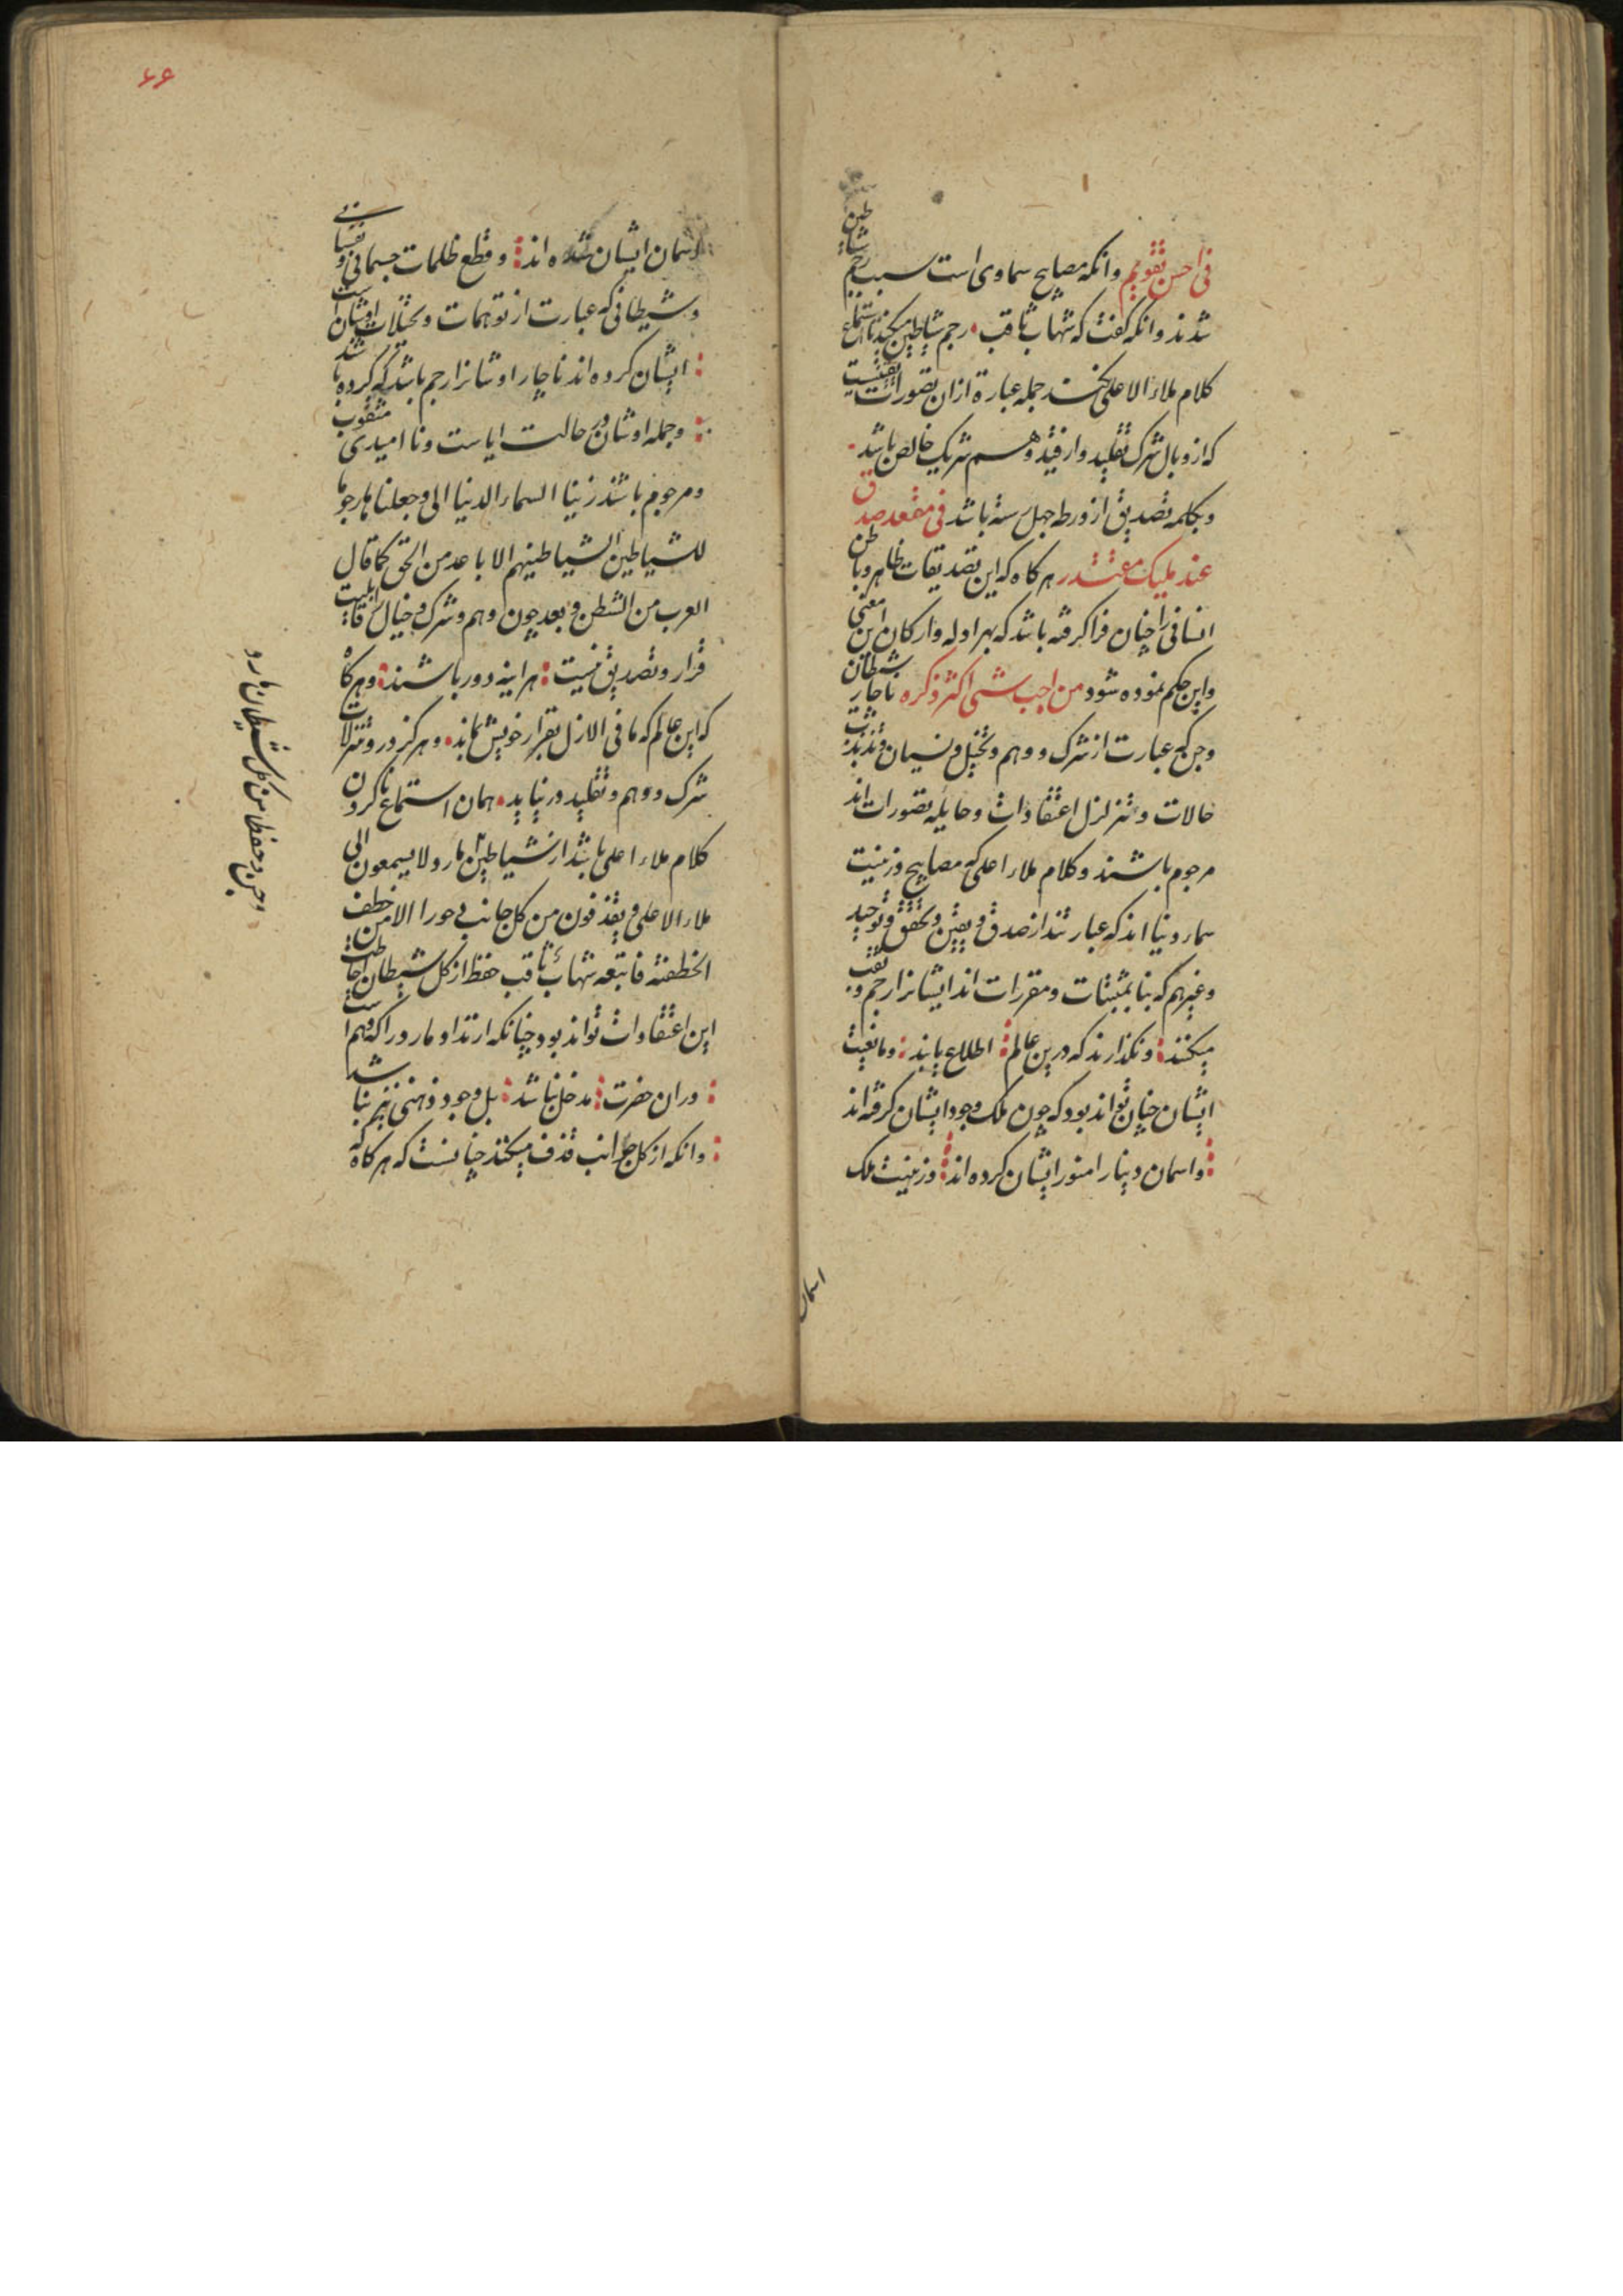 فی احسن تقویم وانکه مصابیح سماوی است سبب رجم شیاطین
شدند وانکه گفت که شهاب ثاقب رجم شیاطین میکند تا استماع
کلام ملاء الاعلی نکنند جمله عبارة ازان تصورات یقینیست
که از وبال شرک تقلید وارفید وهم شریک خالص باشد
وبکلمه تصدیق از ورطه جهل رسته باشد فی مقعد صدق
عند ملیک مقتدر هرکاه که این تصدیقات ظاهر وباطن
انسانی را چنان فراکرفته باشد که بهر ادله وارکان این معنی
واین حکم نموده شود من احب شی اکثر ذکره ناچار شیطان
وجن که عبارت از شرک ووهم وتخیل ونسیان وتذبذب
حالات وتزلزل اعتقادات وحایله تصورات اند
مرجوم باشند وکلام ملاء اعلی که مصابیح وزینت
سماء دنیا اند که عبارتند از صدق ویقین وتحقق وتوحید
وغیرهم که بنا بمثبتات ومقررات اند ایشانرا رجم وثقب
میکنند ونکذارند که درین عالم اطلاع یابند ومانعیت
ایشان چنان تواند بود که چون ملک وجود ایشان کرفته اند
واسمان دینار امنور ایشان کرده اند وزینت ملک
اسمان
۶۶
اسمان ایشان شده اند وقطع ظلمات جسمانی ونفسانی
وشیطانی که عبارت از توهمات وتخیلات اوشان است
ایشان کرده اند ناچار اوشانرا رجم باشد که کرده باشد
وجمله اوشان در حالت ایاست ونا امیدی مثقوب
ومرجوم باشند زینا السماء الدنیا الی وجعلناها رجوما
للشیاطین الشیاطینهم الاباعد من الحق کما قال
العرب من الشطن وبعد چون وهم وشرک وخیال را قابلیت
قرار وتصدیق نیست هر اینه دور باشند وهرکاه
که این عالم که ما فی الازل بقرار خویش نماند وهرکز در وتنزلات
شرک ووهم وتقلید در نیاید همان استماع ناکردن
کلام ملاء اعلی باشد از شیاطین مارد ولا یسمعون الی
ملاء الاعلی ویقذفون من کل جانب دحورا الا من خطف
الخطفة فاتبعه شهاب ثاقب حفظ از کل شیطان
این اعتقادات تواند بود چنانکه ارتداد مارد را که وهم است
دران حضرت مدخل نباشد بل وجود ذهنی نیز نباشد
وانکه از کل جوانب قذف میکنند چنانست که هرکاه که
وجن وحفظا من کل شیطان مارد